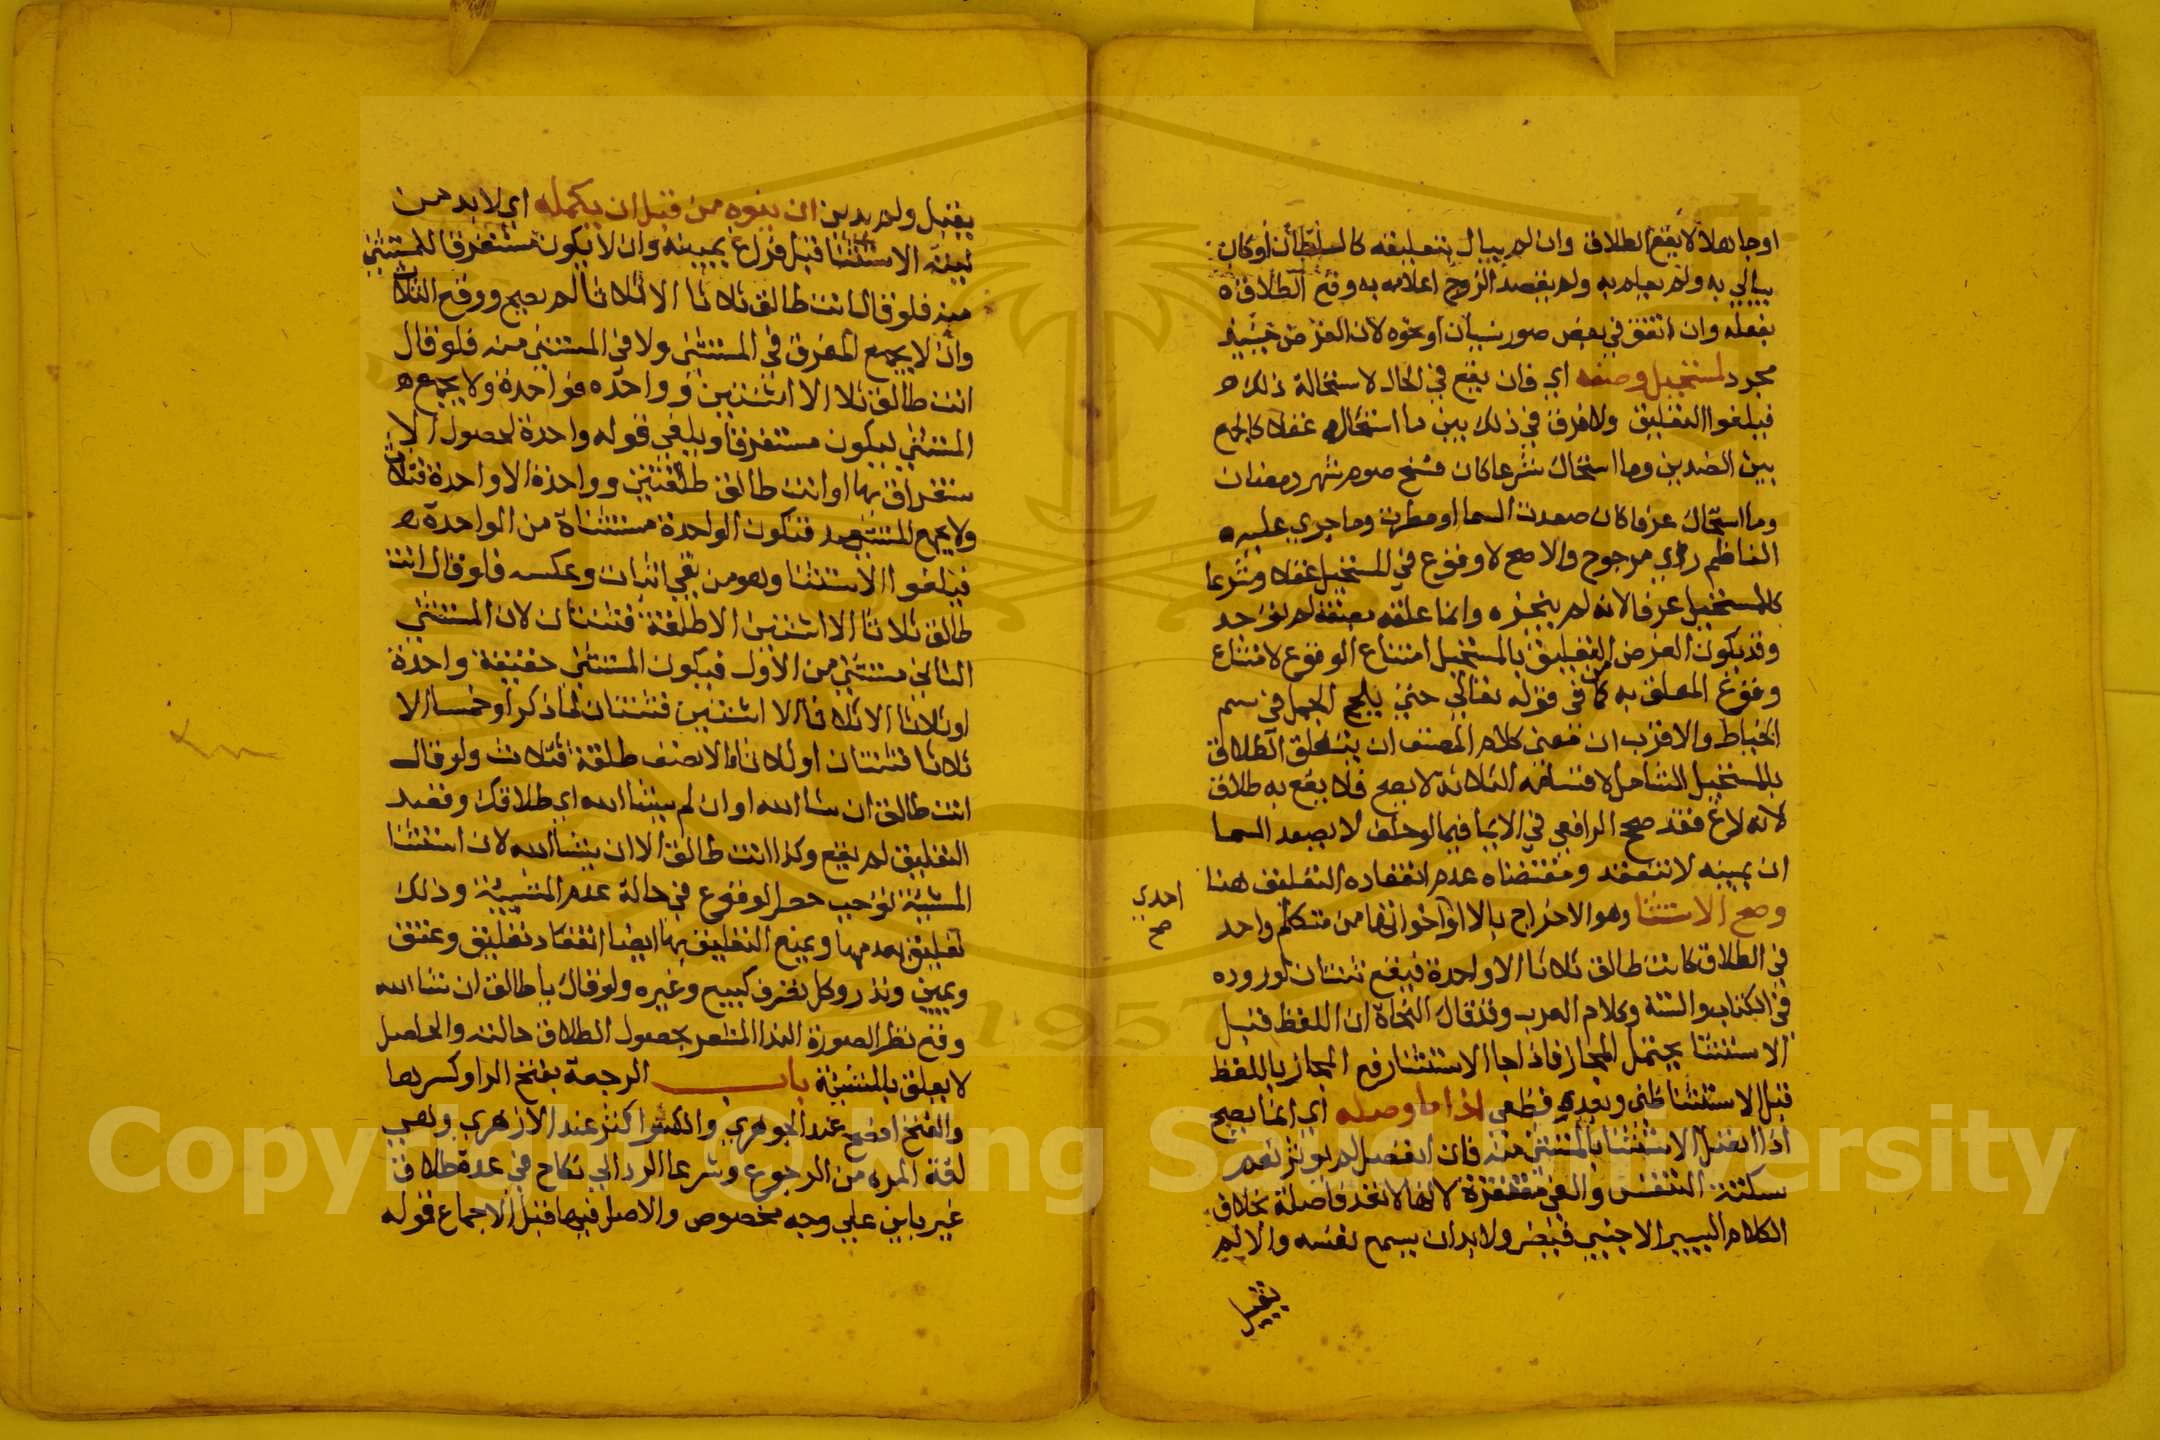 اوجاهلا لا يقع الطلاق وان لم يبال بتعليقه كالسلطان او كان
يبالي به ولم يعلم به ولم يقصد الزوج اعلامه به وقع الطلاق
بفعله وان اتفق في بعض صور نسيان او نحوه لان الغرض حينيذ
مجرد لمستحيل وصفه اي فان يقع في الحال لاستحالة ذلك
فيلغوا التعليق ولا فرق في ذلك بين ما استحال عقلا كالجمع
بين الضدين وما استحال شرعا كان فسخ صوم شهر رمضان
وما استحال عرفا كان صعدت السما او طرت وما جري عليه
الناظم راي مرجوح والاصح لا وقوع في المستحيل عقلا وشرعا
كالمستحيل عرفا لانه لم ينجزه وانما علقه بصفة لم توجد
وقد يكون الغرض من التعليق بالمستحيل امتناع الوقوع لامتناع
وقوع المعلق به كما في قوله تعالي حتي يلج الجمل في سم
الخياط والاقرب ان معني كلام المصنف ان تعلق الطلاق
بالمستحيل الشامل لاقسامه الثلاثة لا يصح فلا يقع به طلاق
لانه لاغ فقد صحح الرافعي في الايما فيما لو حلف لا يصعد السما
ان يمينه لا تنعقد ومقتضاه عدم انعقاده التعليق هنا
وصح الاستثنا وهو الاخراج بالا او احدي اخواتها من متكلم واحد
في الطلاق كانت طالق ثلاثا الا واحدة فيقع ثنتان لوروده
في الكتاب والسنة وكلام العرب وقد قال النحاة ان اللفظ قبل
الاستثنا يحتمل المجاز فاذا جا الاستثنا رفع المجاز باللفظ
قبل الاستثنا ظني وبعده قطعي اذا ما وصله اي انما يصح
اذا اتصل الاستثنا بالمستثني منه فان انفصل لم يوثر نعم
سكتة التنفس والعي مغتفرة لانها لا تعد فاصلة بخلاف
الكلام اليسير الاجنبي فيضر ولا بد ان يسمع نفسه والا لم
يقبل
احدي
صح
يقبل ولم يدين ان ينوه من قبل ان يكمله اي لا بد من
نية الاستثنا قبل فراغ يمينه وان لا يكون مستغرقا للمستثني
منه فلو قال انت طالق ثلاثا الا ثلاثا لم يصح ووقع الثلاث
وان لا يجمع المفرق في المستثني ولا في المستثني منه فلو قال
انت طالق ثلاثا الا اثنتين وواحدة فواحدة ولا يجمع
المستثني ليكون مستغرقا ويلغي قوله واحدة لحصول الا
ستغراق بها او انت طالق طلقتين وواحدة الا واحدة فثلاث
ولا يجمع المستثني منه فتكون الواحدة مستثناة من الواحدة
فيلغوا الاستثنا وهو من نفي اثبات وعكسه فلو قال انت
طالق ثلاثا الا اثنتين الا طلقة فثنتان لان المستثني
الثاني مستثني من الاول فيكون المستثني حقيقة واحدة
او ثلاثا الا ثلاثا الا اثنتين فثنتان لما ذكر او خمسا الا
ثلاثا فثنتان او ثلاثا الا نصف طلقة فثلاث ولو قال
انت طالق ان شا الله او ان لم يشا الله اي طلاقك وقصد
التعليق لم يقع وكذا انت طالق الا ان يشا الله لان استثنا
المشيئة توجب حصر الوقوع في حالة عدم المشيئة وذلك
تعليق بعدمها ويمنع التعليق بها ايضا انعقاد تعليق وعتق
ويمين ونذر وكل تصرف كبيع وغيره ولو قال يا طالق ان شا الله
وقع نظرا لصورة الندا المشعر بحصول الطلاق حالته والحاصل
لا يعلق بالمشيئة باب الرجعة بفتح الرا وكسرها
والفتح افصح عند الجوهري والكسر اكثر عند الازهري وهي
لغة المرة من الرجوع وشرعا الرد الي نكاح في عدة طلاق
غير باين علي وجه مخصوص والاصل فيها قبل الاجماع قوله